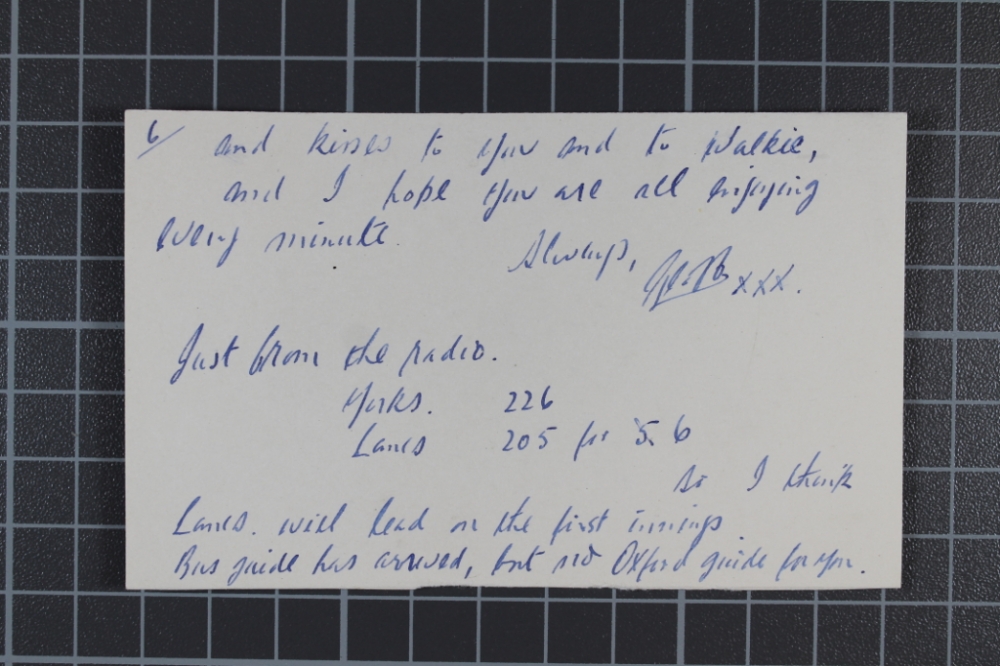 6/ and kisses to you and to Walkie,
and I hope you are all enjoying
every minute.
Always,
xxx.
Just from the radio.
Yorks. 226
Lancs 205 for 5. 6
so I think
Lancs. will lead on the first innings
Bus guide has arrived, but no Oxford guide for you.